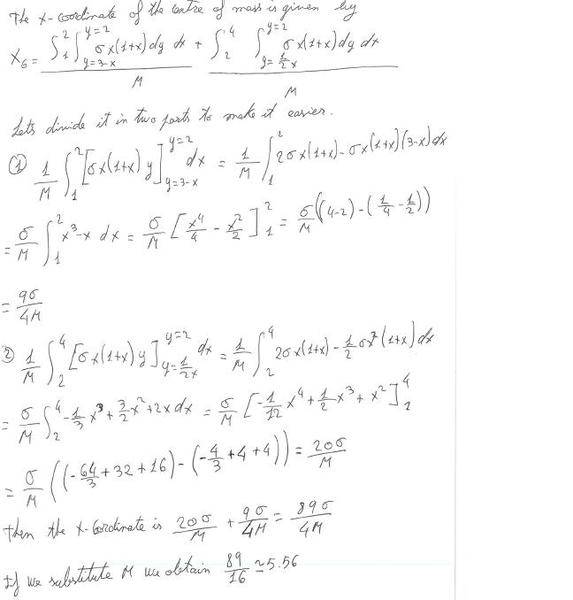 The x-coordinate of the centre of mass is given by
X_G = ∫_1^2 ∫_{y=3-x}^{y=2} σx(1+x)dy dx / M + ∫_2^4 ∫_{y=½x}^{y=2} σx(1+x)dy dx / M
Lets divide it in two parts to make it easier.
① 1/M ∫_1^2 [σx(1+x)y]_{y=3-x}^{y=2} dx = 1/M ∫_1^2 2σx(1+x)-σx(1+x)(3-x)dx
= σ/M ∫_1^2 x³-x dx = σ/M [x⁴/4 - x²/2]_1^2 = σ/M ((4-2)-(1/4-1/2))
= 9σ/4M
② 1/M ∫_2^4 [σx(1+x)y]_{y=½x}^{y=2} dx = 1/M ∫_2^4 2σx(1+x)-½σx²(1+x)dx
= σ/M ∫_2^4 -⅓x³+3/2x²+2x dx = σ/M [-1/12x⁴+½x³+x²]_2^4
= σ/M ((-64/3+32+16)-(-4/3+4+4)) = 20σ/M
Then the x-coordinate is 20σ/M + 9σ/4M = 89σ/4M
If we substitute M we obtain 89/16 ≃ 5.56